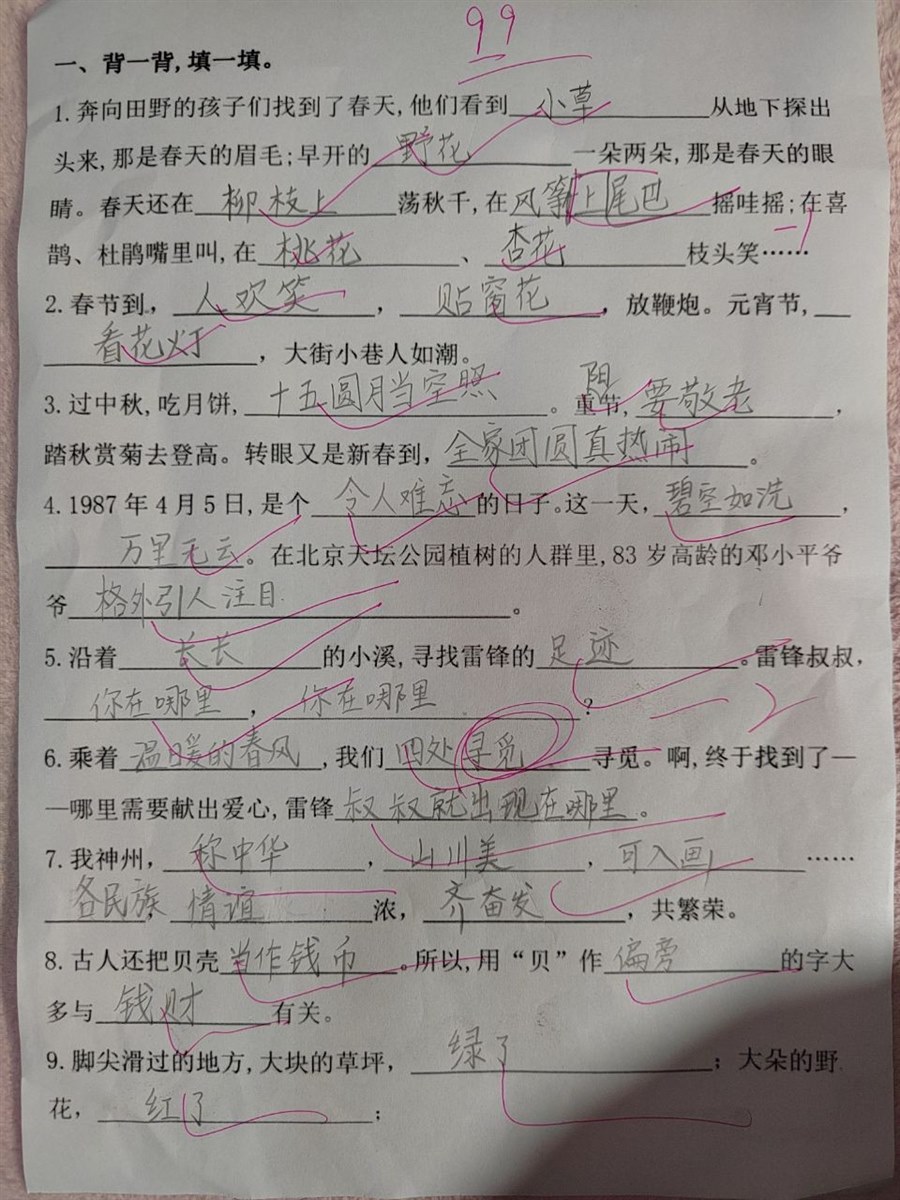 99
一、背一背,填一填。
1.奔向田野的孩子们找到了春天,他们看到小草从地下探出
头来,那是春天的眉毛;早开的野花一朵两朵,那是春天的眼
睛。春天还在柳枝上荡秋千,在风筝上尾巴摇哇摇;在喜
-1
鹊、杜鹃嘴里叫,在桃花、杏花枝头笑……
2.春节到,人欢笑,贴窗花,放鞭炮。元宵节,
看花灯,大街小巷人如潮。
3.过中秋,吃月饼,十五圆月当空照。重阳节,要敬老,
踏秋赏菊去登高。转眼又是新春到,全家团圆真热闹。
4.1987年4月5日,是个令人难忘的日子。这一天,碧空如洗,
万里无云。在北京天坛公园植树的人群里,83岁高龄的邓小平爷
爷格外引人注目。
5.沿着长长的小溪,寻找雷锋的足迹。雷锋叔叔,
你在哪里,你在哪里?
-2
6.乘着温暖的春风,我们四处寻觅寻觅。啊,终于找到了—
—哪里需要献出爱心,雷锋叔叔就出现在哪里。
7.我神州,称中华,山川美,可入画……
各民族,情谊浓,齐奋发,共繁荣。
8.古人还把贝壳当作钱币。所以,用“贝”作偏旁的字大
多与钱财有关。
9.脚尖滑过的地方,大块的草坪,绿了;大朵的野
花,红了;